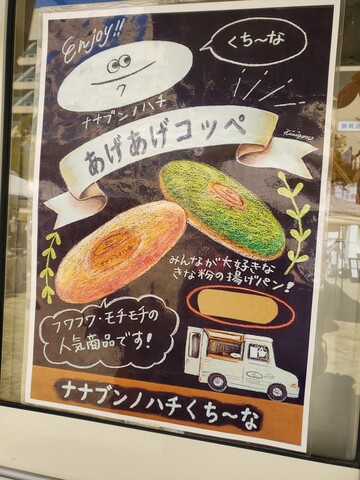 Enjoy!!
くち〜な
ナナブンノハチ
あげあげコッペ
みんなが大好きな
きな粉の揚げパン!
フワフワ・モチモチの
人気商品です!
ナナブンノハチくち〜な